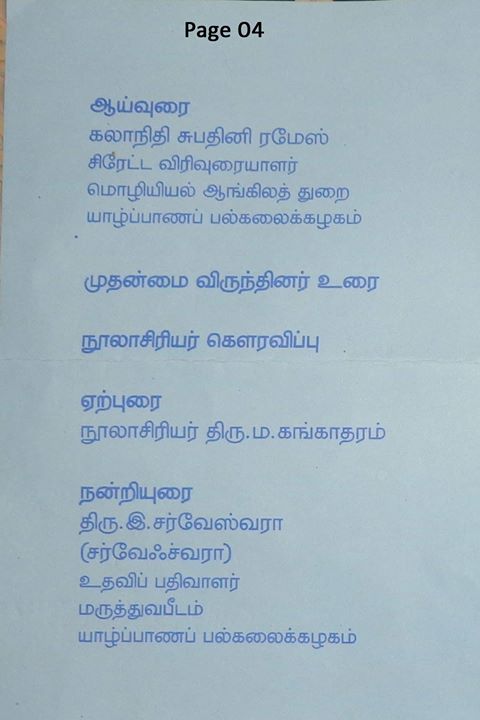 Page 04
ஆய்வுரை
கலாநிதி சுபதினி ரமேஸ்
சிரேட்ட விரிவுரையாளர்
மொழியியல் ஆங்கிலத் துறை
யாழ்ப்பாணப் பல்கலைக்கழகம்
முதன்மை விருந்தினர் உரை
நூலாசிரியர் கௌரவிப்பு
ஏற்புரை
நூலாசிரியர் திரு.ம.கங்காதரம்
நன்றியுரை
திரு.இ.சர்வேஸ்வரா
(சர்வேஃச்வரா)
உதவிப் பதிவாளர்
மருத்துவபீடம்
யாழ்ப்பாணப் பல்கலைக்கழகம்